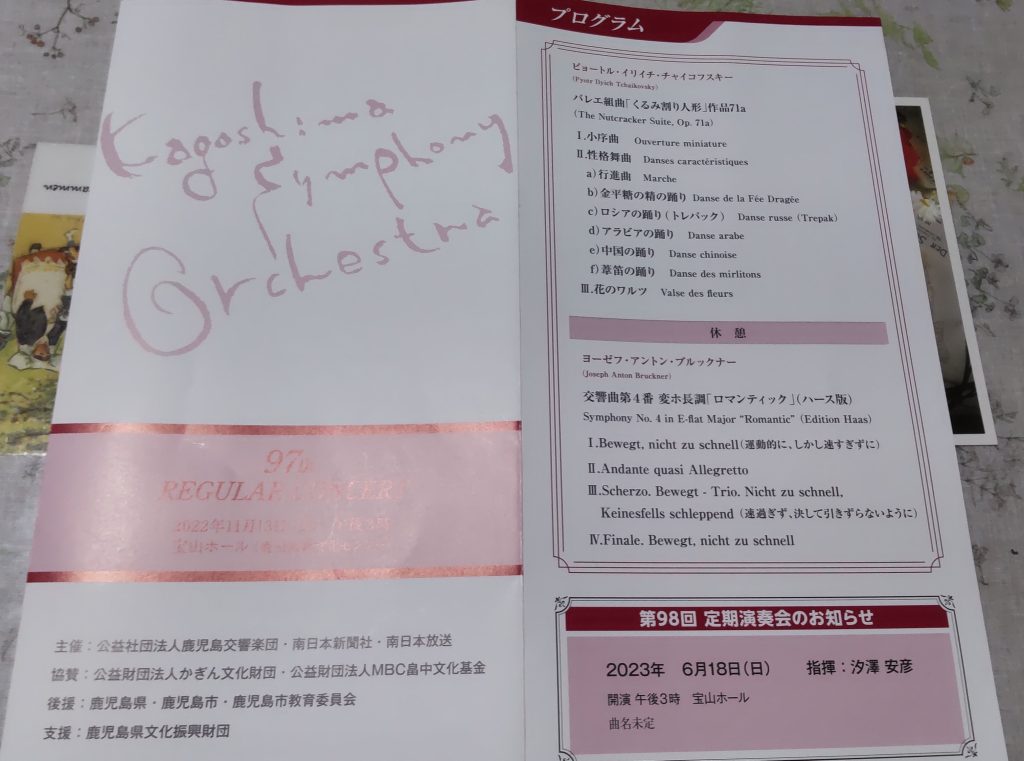 Kagoshima
Symphony
Orchestra
97th
REGULAR CONCERT
2022年11月13日
宝山ホール
主催：公益社団法人鹿児島交響楽団・南日本新聞社・南日本放送
協賛：公益財団法人かぎん文化財団・公益財団法人MBC畠中文化基金
後援：鹿児島県・鹿児島市・鹿児島市教育委員会
支援：鹿児島県文化振興財団
プログラム
ピョートル・イリイチ・チャイコフスキー
(Pyotr Ilyich Tchaikovsky)
バレエ組曲「くるみ割り人形」作品71a
(The Nutcracker Suite, Op. 71a)
Ⅰ.小序曲 Ouverture miniature
Ⅱ.性格舞曲 Danses caractéristiques
a)行進曲 Marche
b)金平糖の精の踊り Danse de la Fée Dragée
c)ロシアの踊り(トレパック) Danse russe (Trepak)
d)アラビアの踊り Danse arabe
e)中国の踊り Danse chinoise
f)葦笛の踊り Danse des mirlitons
Ⅲ.花のワルツ Valse des fleurs
休 憩
ヨーゼフ・アントン・ブルックナー
(Joseph Anton Bruckner)
交響曲第4番 変ホ長調「ロマンティック」(ハース版)
Symphony No. 4 in E-flat Major “Romantic” (Edition Haas)
Ⅰ.Bewegt, nicht zu schnell(運動的に、しかし速すぎずに)
Ⅱ.Andante quasi Allegretto
Ⅲ.Scherzo. Bewegt - Trio. Nicht zu schnell,
Keinesfells schleppend (速過ぎず、決して引きずらないように)
Ⅳ.Finale. Bewegt, nicht zu schnell
第98回 定期演奏会のお知らせ
2023年 6月18日(日) 指揮：汐澤 安彦
開演 午後3時 宝山ホール
曲名未定
Der